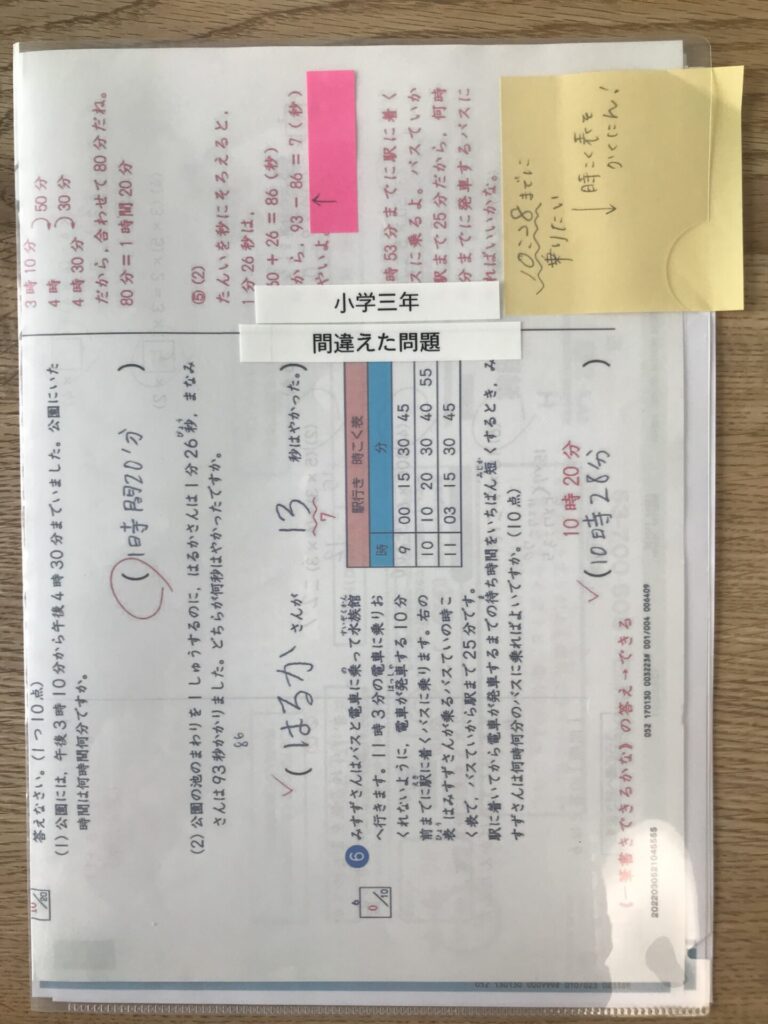 小学三年
間違えた問題
答えなさい。(1つ10点)
(1) 公園には、午後3時10分から午後4時30分までいました。公園にいた
時間は何時間何分ですか。
(1時間20分)
(2) 公園の池のまわりを1しゅうするのに、はるかさんは1分26秒、まなみ
さんは93秒かかりました。どちらが何秒はやかったですか。
86
(はるかさんが 13 秒はやかった。)
7
6
0/10
6 みすずさんはバスと電車に乗って水族館
へ行きます。11時3分の電車に乗りお
くれないように、電車が発車する10分
前までに駅に着くバスに乗ります。右の
表はみすずさんが乗るバスていの時こ
く表で、バスていから駅まで25分です。
駅に着いてから電車が発車するまでの待ち時間をいちばん短くするとき、み
すずさんは何時何分のバスに乗ればよいですか。(10点)
駅行き 時こく表
時 分
9 00 15 30 45
10 10 20 30 40 55
11 03 15 30 45
10時20分
(10時28分)
《一筆書きできるかな》の答え→できる
052 170130 003223# 001/004 006409
2022030521045555
3時10分
4時
4時30分
50分
30分
だから、合わせて80分だね。
80分=1時間20分
⑤(2)
たんいを秒にそろえると、
1分26秒は、
60+26=86(秒)
から、93-86=7(秒)
やいよ
時53分までに駅に着く
スに乗るよ。バスていか
駅まで25分だから、何時
分までに発車するバスに
ればいいかな。
10:28までに
乗りたい
↓時こく表を
かくにん!